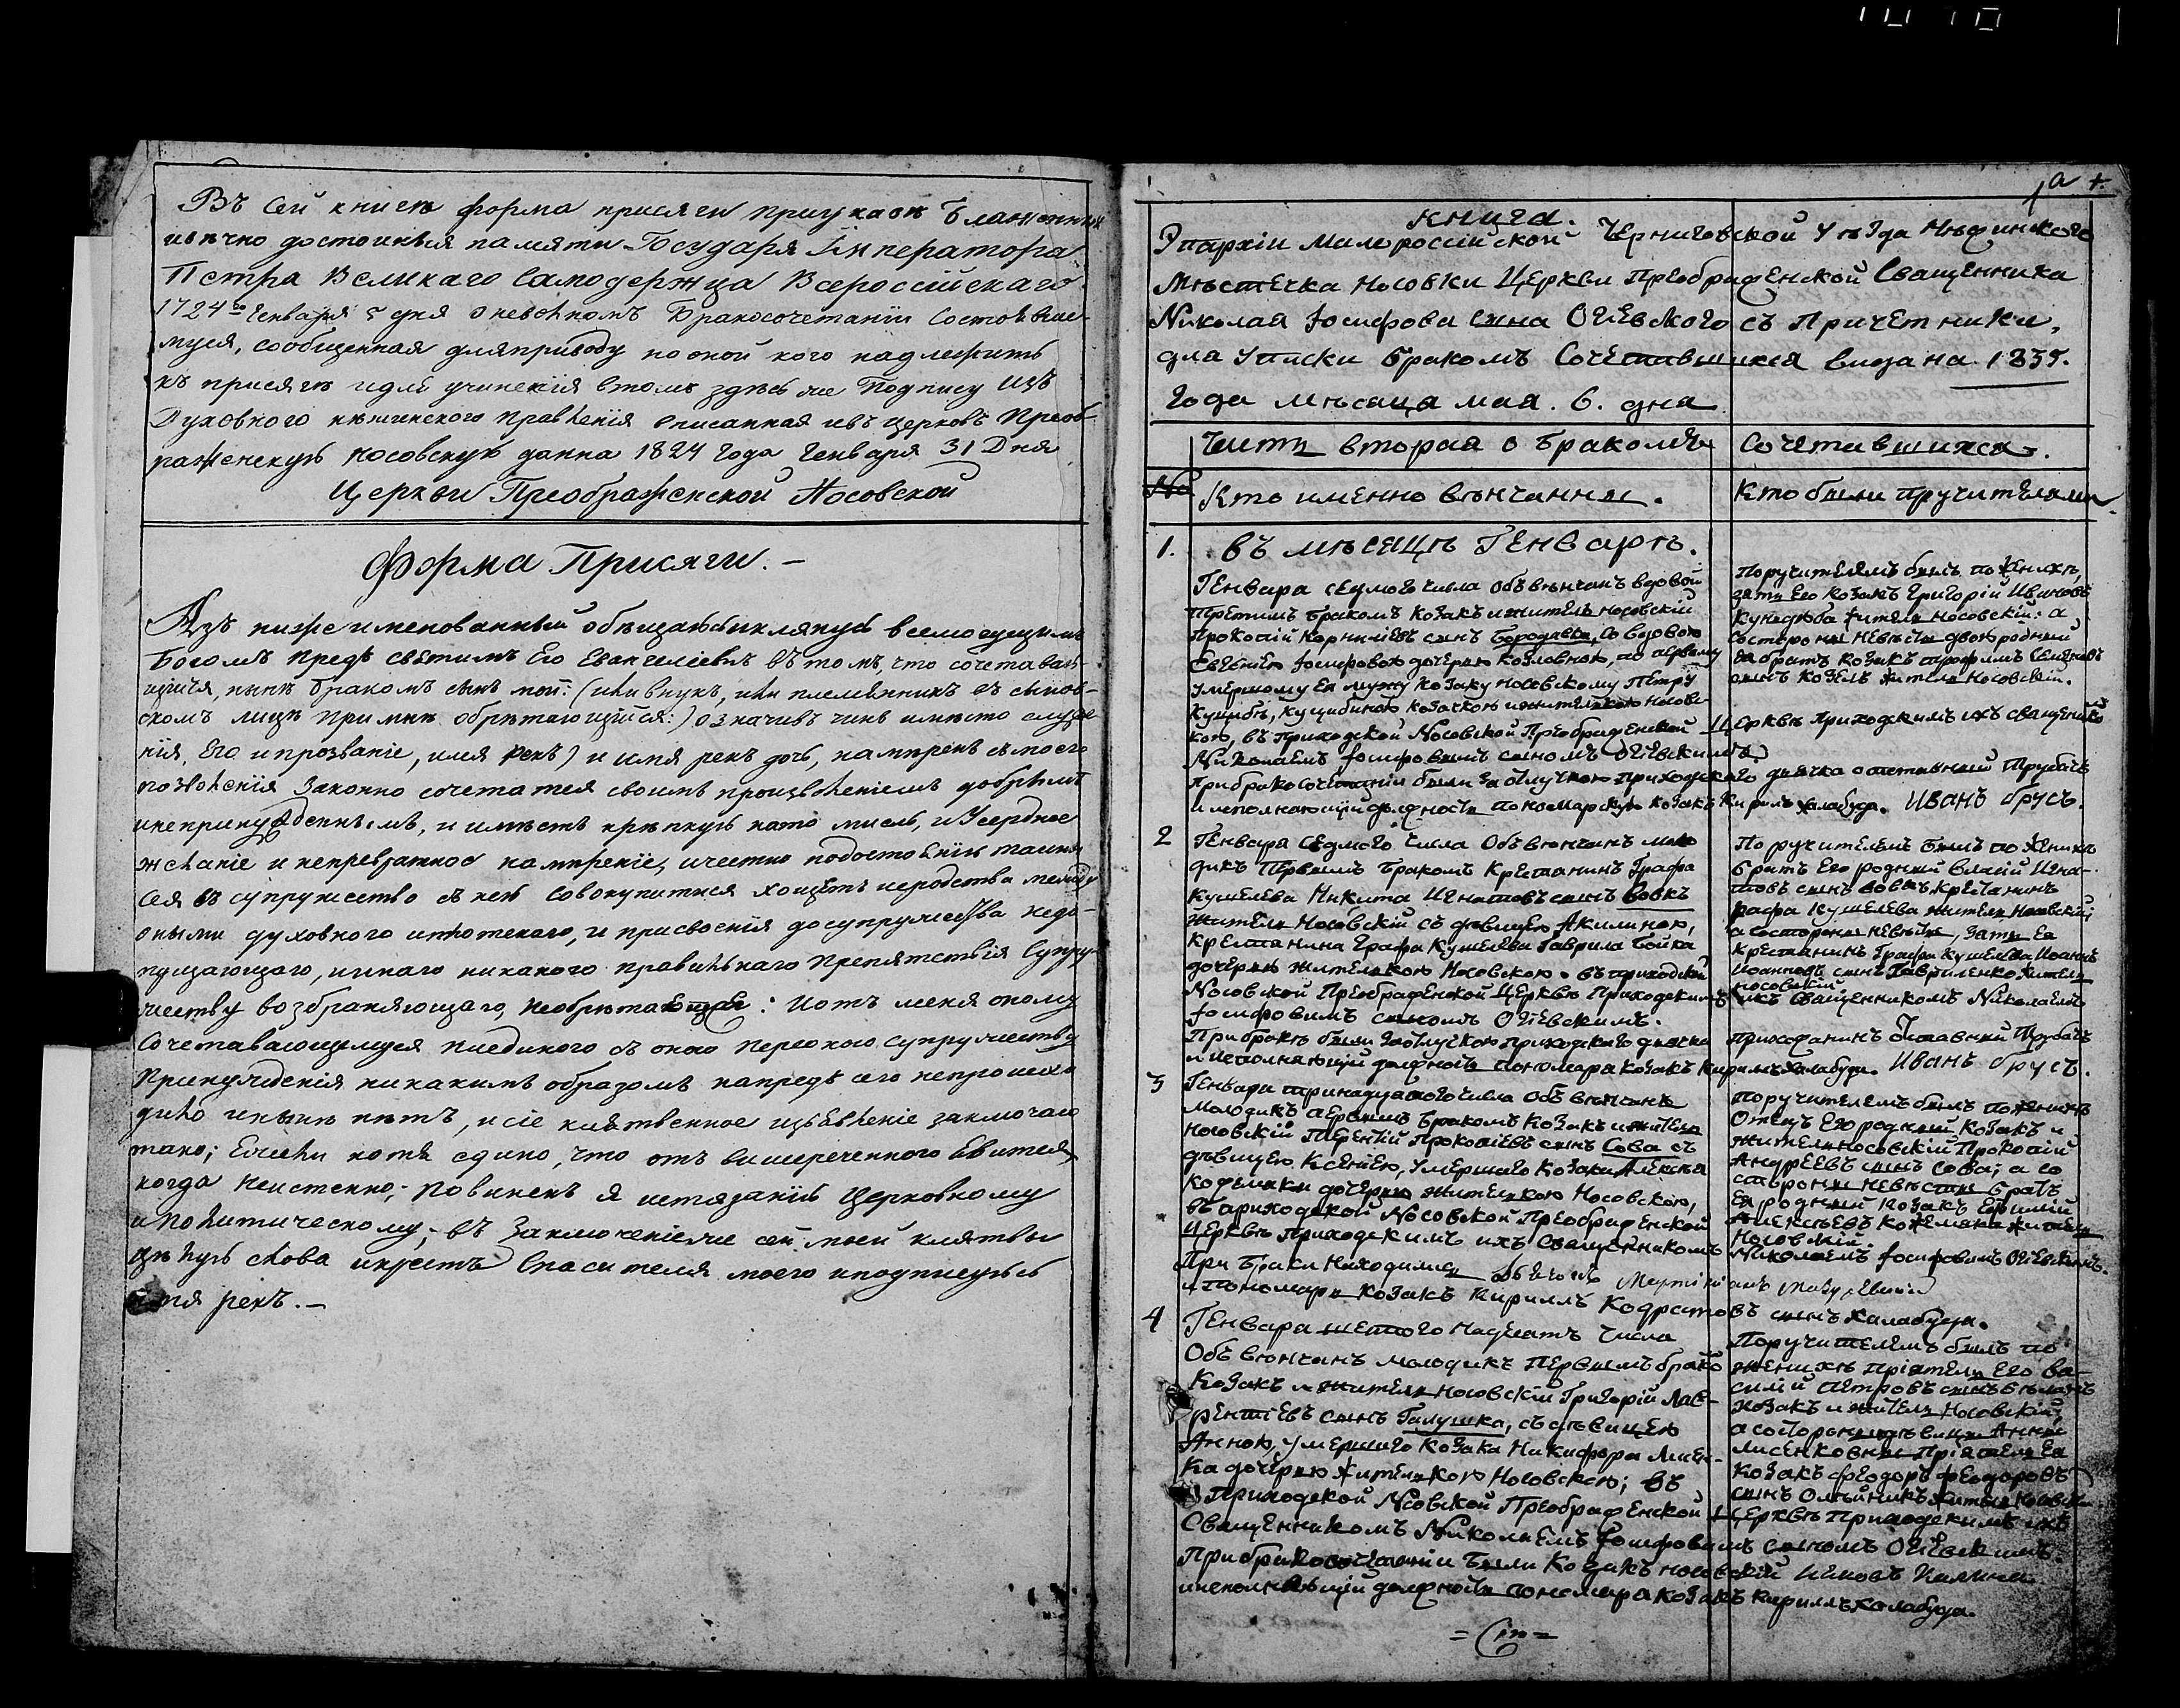 Въ сей книгѣ форма присяги приуказѣ блаженныя
ивѣчно достоинныя памяти Государя Императора
Петра Великаго Самодержца Всероссійскаго
1724го Генваря 5 дня оневолномъ бракосочетаніи состоявше-
муся, сообщенная дляприводу поокой кого надлежитъ
къ присягѣ идля учиненія втомъ здѣсь же подпису изъ
Духовного нѣжинского правленія списанная ивъ церковъ Преоб-
раженскую носовскую данна 1824 года Генваря 31 Дня
Церкви Преображенской Носовской
Форма Присяги. –
Азъ нижеименованный обѣщаюсь иклянусь всемогущимъ
Богомъ предъ святимъ Его Евангеліемъ въ томъ, что сочетаваю-
щійся, нынѣ бракомъ сынъ мой: (или внукъ, или племѣнникъ въ сынов-
скомъ лицѣ при мнѣ обрѣтающійся:) означивъ чинъ имѣсто служе-
нія, Его ипрозваніе, имя рекъ) и имя рекъ дочь, намѣренъ съ моего
позволенія законно сочетатся своимъ произволеніемъ добрымъ
инепринужденнымъ, и имѣетъ крѣпкую нато мысль, иУсердное
желаніе и непревратное намѣреніе, ичестно
сея въ супружество съ нею совокупитися хощетъ иеродства между
оными духовного иплотскаго, и присвоенія досупружества недо-
пущающаго, ииного никакого правильнаго препятствія Супру-
жеству возбраняющаго, необрѣтающая: иотъ меня оному
Сочетавающемуся паединого съ оною персоною супружеству
Принужденія никакимъ образомъ напредъ сего непроисхо
дило инынѣ нѣтъ, исіе клятвенное изъявленіе заключаю
тако; Ежели хотя едино, что отъ вишереченного явится
когда неистенно; повиненъ я истязанію церковному
иполитическому; въ заключеніеже сей моей клятвы
цѣлую слова икрестъ Спасителя моего иподписуюсь
имя рекъ. –
1а
книга.
Эпархіи Малороссійской Черниговской Уѣзда Нѣжинского
Мѣстечка Носовки Церкви Преображенской Священника
Николая Іосифова сына Огіевского съ Причетники,
для Уписки Бракомъ Сочетавшихся видана 1835.
Года мѣсяца мая. 6. дня
Часть вторая о Бракомъ Сочетавшихся.
№ Кто именно вѣнчанны. Кто были пручителями
1. въ мѣсяцѣ Генварѣ.
Генвара седмого числа объвѣнчанъ вдовой
третимъ бракомъ Козакъ ижитель носовскій
Прокопій Корниліевъ сынъ Бородавка, со вдовою
Евгеніею Іосифовою дочерью Козловною, по первому
умершому Ея мужу козаку носовскому Петру
Куцибѣ, Куцибиною козачкою ижителкою носовс-
кою, въ приходской Носовской Преображенской Церквѣ Приходскимъ ихъ священико
Николаемъ Іосифовымъ сыномъ Огіевскимъ.
Прибракосочетаніи были за отлучкою приходскаго дьячка отставный Трубачъ Иванъ брусъ.
иисполняющій должность пономарскую козакъ Кирилъ халабуда.
Поручителемъ былъ по женихѣ,
зать Его козакъ Григорій Ивановъ
житель носовскій: а
состороны невѣсты двоюродный
Ея братъ козакъ трофимъ Семеновъ
сынъ козелъ житель Носовскій.
2 Генвара седмого числа Объвѣнчанъ моло
дикъ Первымъ бракомъ Крестанинъ Графа
Кушелева Никита Игнатовъ сынъ Вовкъ
житель Носовскій съ дѣвицею Акилиною,
Крестанина Графа Кушелева Гаврила бойка
дочерью жителкою Носовскою. въ приходской
Носовской Преображенской Церквѣ Приходскимъ ихъ Священникомъ Николаемъ
Іосифовимъ сыномъ Огіевскимъ.
Прибракѣ были заотлучкою приходского дьячка прихожанинъ отставный Трубачъ
и исполняющій должность пономара козакъ Кирилъ халабуда. Иванъ брусъ.
Поручителемъ былъ по женихѣ
братъ Его родный Власій Игна-
товъ сынъ вовкъ крестанинъ
графа Кушелева житель Носовскій
а состороны невѣсты, зать Ея
крестанинъ Графа Кушелева Иоаннъ
Иоанновъ сынъ Гавриленко житель
носовскій.
3 Генвара тринадцатого числа объвѣнчанъ
молодикъ первымъ бракомъ Козакъ ижитель
носовскій Прокопіевъ сынъ Сова съ
дѣвицею Ксеніею, умершаго козака Алексѣя
кожемаки дочерью жителкою Носовскою,
въ приходской Носовской Преображенской
Церквѣ приходскимъ ихъ Священникомъ Николаемъ Іосифовымъ Огіевскимъ.
При браки находились
и Пономарь козакъ Кириллъ Кодратовъ сынъ Халабуда.
поручителемъ былъ по женихѣ
Отецъ Его родный козакъ и
житель носовскій Прокопій
Андреевъ сынъ сова; а со
стороны невѣсты братъ
Ея родный козакъ Евфимій
Алексѣевъ кожемака житель
Носовскій.
4 Генвара шестого Надцеать числа
Объвѣнчанъ молодикъ Первымъ брако
Козакъ и житель носовскій Григорій Лав-
рентіевъ сынъ Галушка, съ дѣвицею
Анною, умершаго козака Никифора Лисен-
ка дочерью жителкою Носовскою; въ
Приходской Носовской Преображенской Церквѣ Приходскимъ ихъ
Священникомъ Николаемъ Іосифовимъ сыномъ Огіевскимъ.
Прибракосочетаніи были Козакъ носовскій
иисполняющій должность пономара козакъ Кириллъ халабуда.
Поручителемъ былъ по
женихѣ пріятель Его Ва
силій Петровъ сынъ
козакъ и житель Носовскій;
а состороны дѣвицы Анны
Лисенковны Пріятель Ея
Козакъ Феодоръ Феодоровъ
сынъ Олѣйникъ житель Носовскій